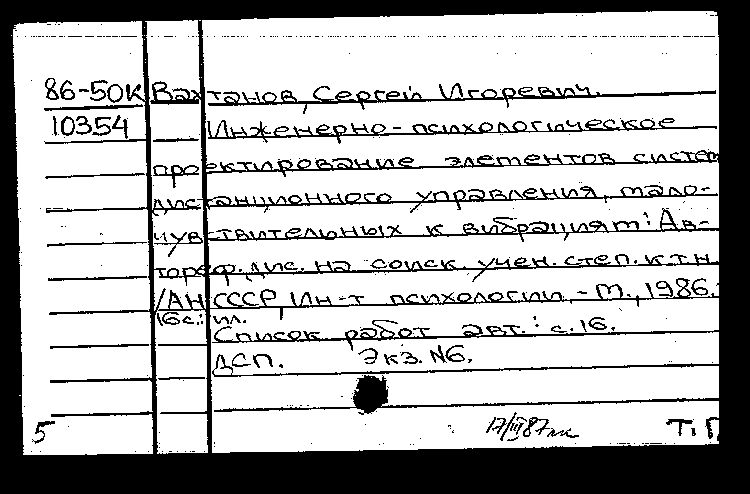 86-50К Вахтанов, Сергей Игоревич.
10354 Инженерно-психологическое
проектирование элементов систем
дистанционного управления, мало-
чувствительных к вибрациям: Ав-
тореф. дис. на соиск. учен. степ. к.т.н.
/АН СССР, Ин-т психологии, - М., 1986.
16с.: ил.
Список работ авт.: с.16.
ДСП. Экз. N6.
17/III 87
5